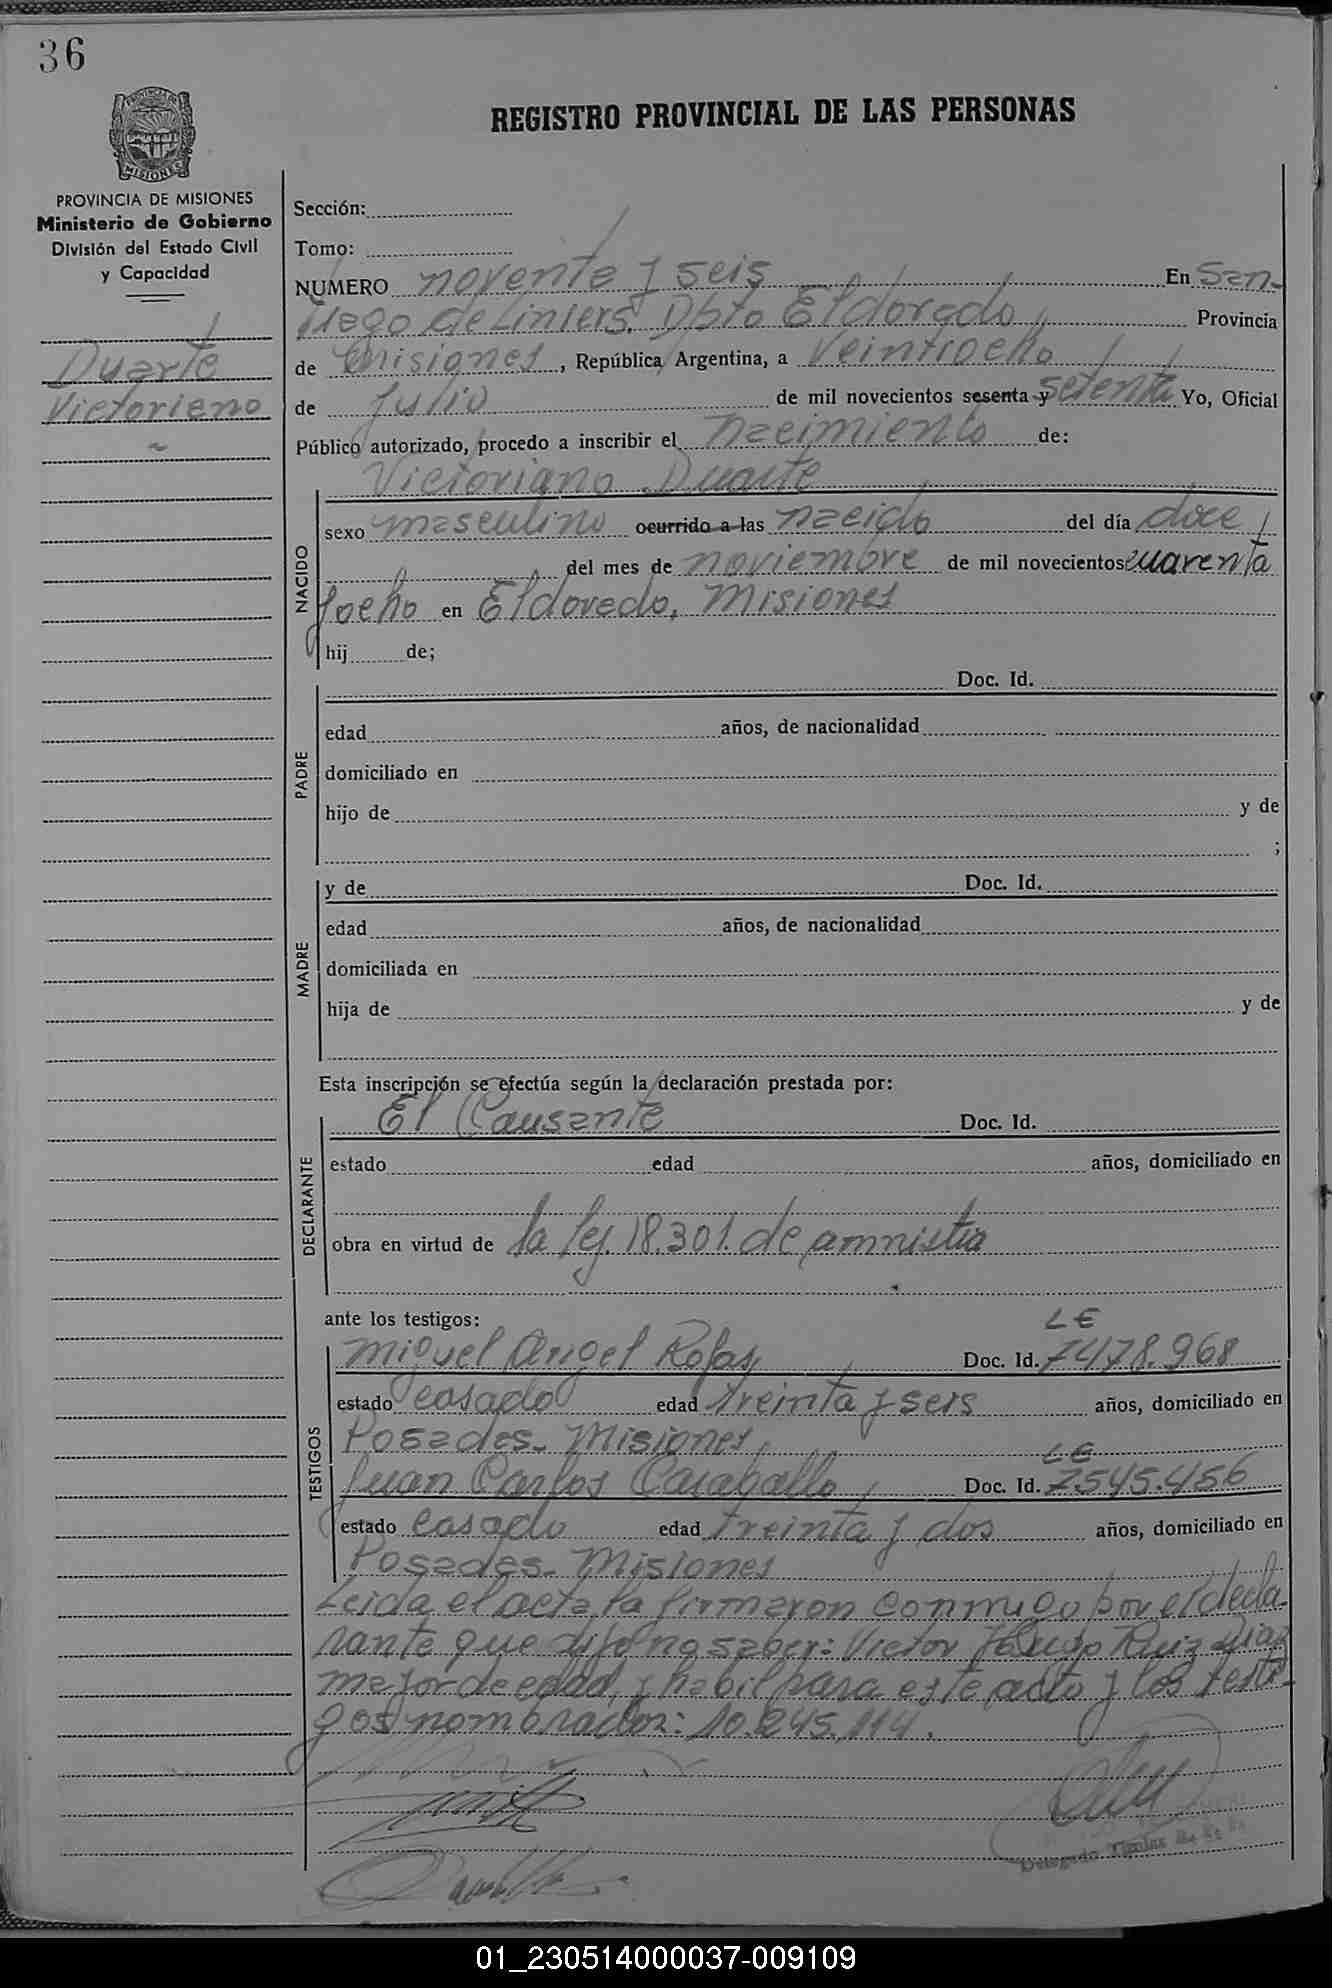 36
REGISTRO PROVINCIAL DE LAS PERSONAS
PROVINCIA DE
MISIONES
PROVINCIA DE MISIONES
Ministerio de Gobierno
División del Estado Civil
y Capacidad
Duarte
Victoriano
Sección:
Tomo:
NUMERO noventa y seis En San-
tiago de Liniers, Dpto Eldorado Provincia
de Misiones, República Argentina, a Veintiocho
de Julio de mil novecientos sesenta y setenta Yo, Oficial
Público autorizado, procedo a inscribir el nacimiento de:
Victoriano Duarte
NACIDO
sexo masculino ocurrido a las nacido del día doce
del mes de noviembre de mil novecientos cuarenta
y ocho en Eldorado, Misiones
hij de;
PADRE
Doc. Id.
edad años, de nacionalidad
domiciliado en
hijo de y de
;
MADRE
y de Doc. Id.
edad años, de nacionalidad
domiciliada en
hija de y de
Esta inscripción se efectúa según la declaración prestada por:
DECLARANTE
El Causante Doc. Id.
estado edad años, domiciliado en
obra en virtud de la ley. 18.301. de amnistia
ante los testigos:
TESTIGOS
LE
Miguel Angel Rojas Doc. Id. 7478.968
estado casado edad treinta y seis años, domiciliado en
Posadas- Misiones,
LE
Juan Carlos Caragallo Doc. Id. 7545.456
estado casado edad treinta y dos años, domiciliado en
Posadas- Misiones
Leida el acta, la firmaron conmigo por el decla-
rante que dijo no saber: Victor Hugo Ruiz Diaz
mayor de edad, y habil para este acto y los testi-
gos nombrados: 10.245.114.
Delegado Titular
01_230514000037-009109